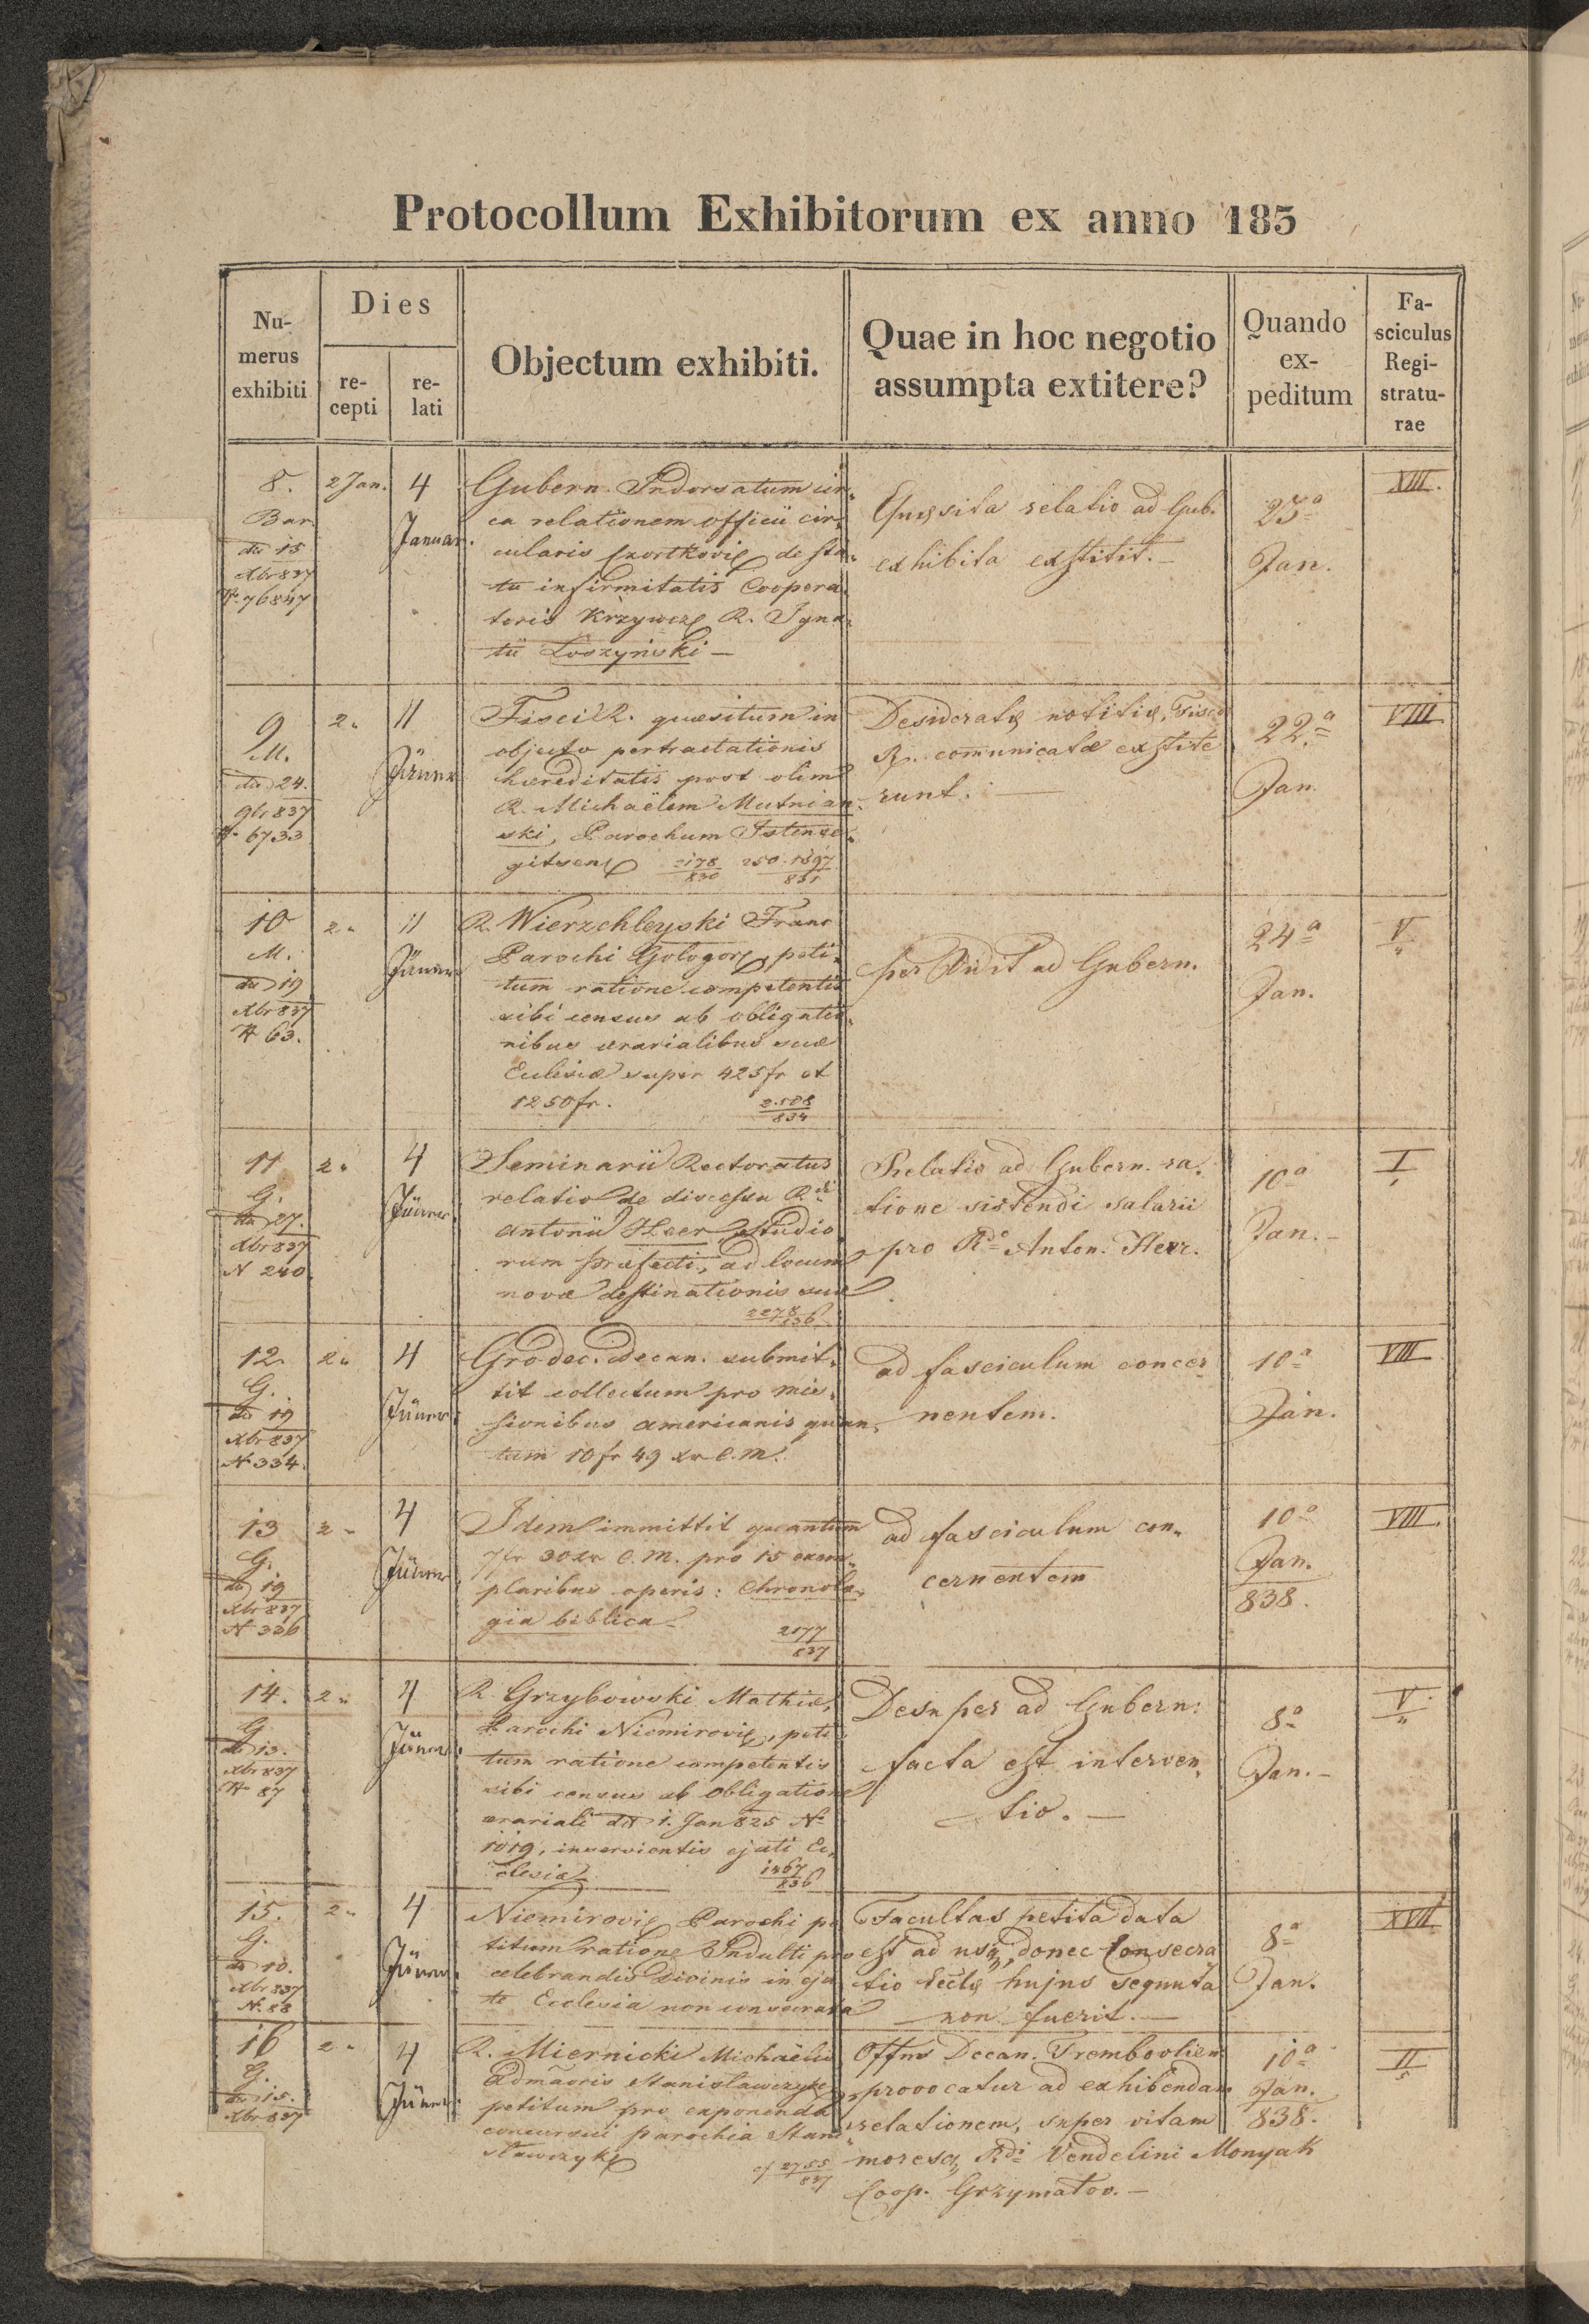 Protocollum Exhibitorum ex anno 183
Nu-
merus
exhibiti
Dies
re-
cepti
re-
lati
Objectum exhibiti.
Quae in hoc negotio
assumpta extitere?
Quando
ex-
peditum
Fa-
sciculus
Regi-
stratu-
rae
8.
Bar.
dto 15
Xbr 837
N. 76847
2 Jan.
4
Januar.
Gubern. Indorsatum cir„
ca relationem officii cir„
cularis Czortkovię de sta„
tu infirmitatis Coopera„
toris Krzywczę R. Igna„
tii Łoszyński –
Quęsita relatio ad Gub.
exhibita exstitit. –
25ª
Jan.
XIII.
9
M.
dto 24.
9br 837
N. 6733
2„
11
Jäner
Fisci R. quaesitum in
objecto pertractationis
haereditatis post olim
R. Michaëlem Mutnian„
ski, Parochum
2178
830
250. 1597
831
Desideratę notitię, Fisco
R. comunicatae exstite
runt. –
22ª
Jan.
VIII
10
M.
dto 19
Xbr 837
N 63.
2„
11
Jäner
R. Wierzchleyski Franc
Parochi Gologorę, peti„
tum ratione competentis
sibi census ab obligatio„
nibus aerarialibus suae
Ecclesiae super 425 fr et
1250 fr.
2508
834
per Indit ad Gubern.
24ª
Jan.
V
11
G.
dto 27.
Xbr 837
N 240.
2„
4
Jäner.
Seminarii Rectoratus
relatio de discessu R.di
Antonii Heer, studio
rum praefecti, ad locum
novae destinationis suae
2278
836
Relatio ad Gubern. ra„
tione sistendi salarii
pro R.do Anton. Herr.
10ª
Jan. –
I
12.
G.
dto 19
Xbr 837
N 334.
2„
4
Jäner.
Grodec. Decan. submit„
tit collectum pro mis„
sionibus americanis quan„
tum 10 fr 49 xr C.M.
ad fasciculum concer
nentem.
10ª
Jan.
VIII
13
G.
dto 19
Xbr 837
N 336
2„
4
Jäner
Idem immittit quantum
7 fr 30 xr C.M. pro 15 exem„
plaribus operis: Chronolo„
gia biblica.
2177
837
ad fasciculum con„
cernentem
10ª
Jan.
838.
VIII.
14.
G.
dto 13.
Xbr 837
N 87
2„
4
Jäner.
R. Grzybowski Mathiae,
Parochi Niemirovię, peti
tum ratione competentis
sibi census ab obligatione
aerariali dto 1. Jan 825 N
1019, inservientis ejati Ec„
clesiae
1467
836
Desuper ad Gubern:
facta est interven„
tio. –
8ª
Jan. –
V
15.
G.
dto 10.
Xbr 837
N. 88
2„
4
Jäner.
Niemirovię Parochi pe
titum ratione Indulti pro
celebrandis divinis in eja
te Ecclesia non consecrata
Facultas petita data
est ad usq, donec Consecra
tio Ecclę hujus sequuta
non fuerit. –
8ª
Jan.
XVII
16
G.
dto 15.
Xbr 837
2„
4
Jäner.
R. Miernicki Michaëlis
Admãoris Stanislawczykę
petitum pro exponenda
concursui parochia Stani„
slawczykę
cf 2755
837
Offns Decan. Trembovlien
provocatur ad exhibendam
relationem, super vitam
moresq, R.di Vendelini Monyak
Coop. Grzymatov. –
10ª
Jan.
838.
II